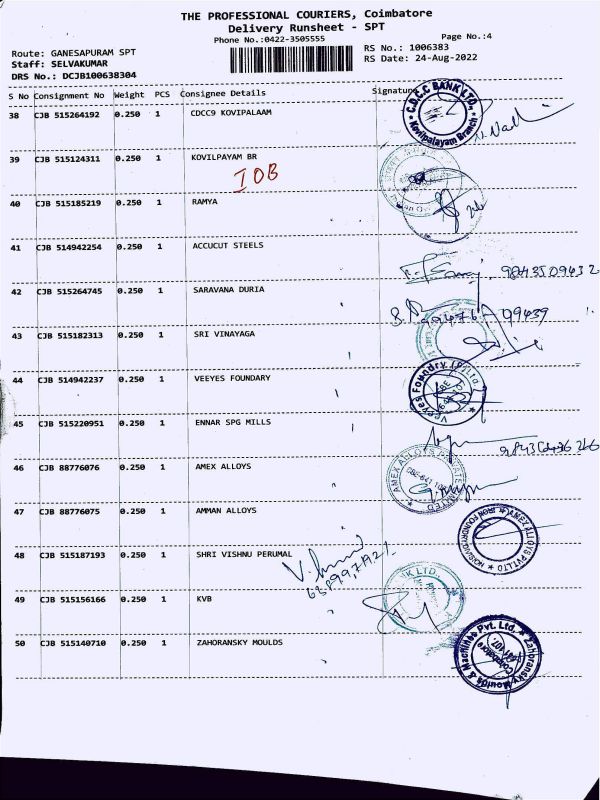 THE PROFESSIONAL COURIERS, Coimbatore
Delivery Runsheet - SPT
Phone No.:0422-3505555
Page No.:4
Route: GANESAPURAM SPT
RS No.: 1006383
Staff: SELVAKUMAR
RS Date: 24-Aug-2022
DRS No.: DCJB100638304
S No Consignment No Weight PCS Consignee Details Signature
38 CJB 515264192 0.250 1 CDCC9 KOVIPALAAM
C.D.C.C BANK LTD., Kovilpalayam Branch
39 CJB 515124311 0.250 1 KOVILPAYAM BR
IOB
40 CJB 515185219 0.250 1 RAMYA
41 CJB 514942254 0.250 1 ACCUCUT STEELS
9843509432
42 CJB 515264745 0.250 1 SARAVANA DURIA
43 CJB 515182313 0.250 1 SRI VINAYAGA
44 CJB 514942237 0.250 1 VEEYES FOUNDARY
Veeyes Foundry (P) Ltd.
45 CJB 515220951 0.250 1 ENNAR SPG MILLS
46 CJB 88776076 0.250 1 AMEX ALLOYS
AMEX ALLOYS PRIVATE LIMITED
47 CJB 88776075 0.250 1 AMMAN ALLOYS
AMEX ALLOYS PVT LTD
48 CJB 515187193 0.250 1 SHRI VISHNU PERUMAL
49 CJB 515156166 0.250 1 KVB
BANK LTD.
50 CJB 515140710 0.250 1 ZAHORANSKY MOULDS
Zahoransky Moulds & Machines Pvt. Ltd.
Coimbatore
641 407.